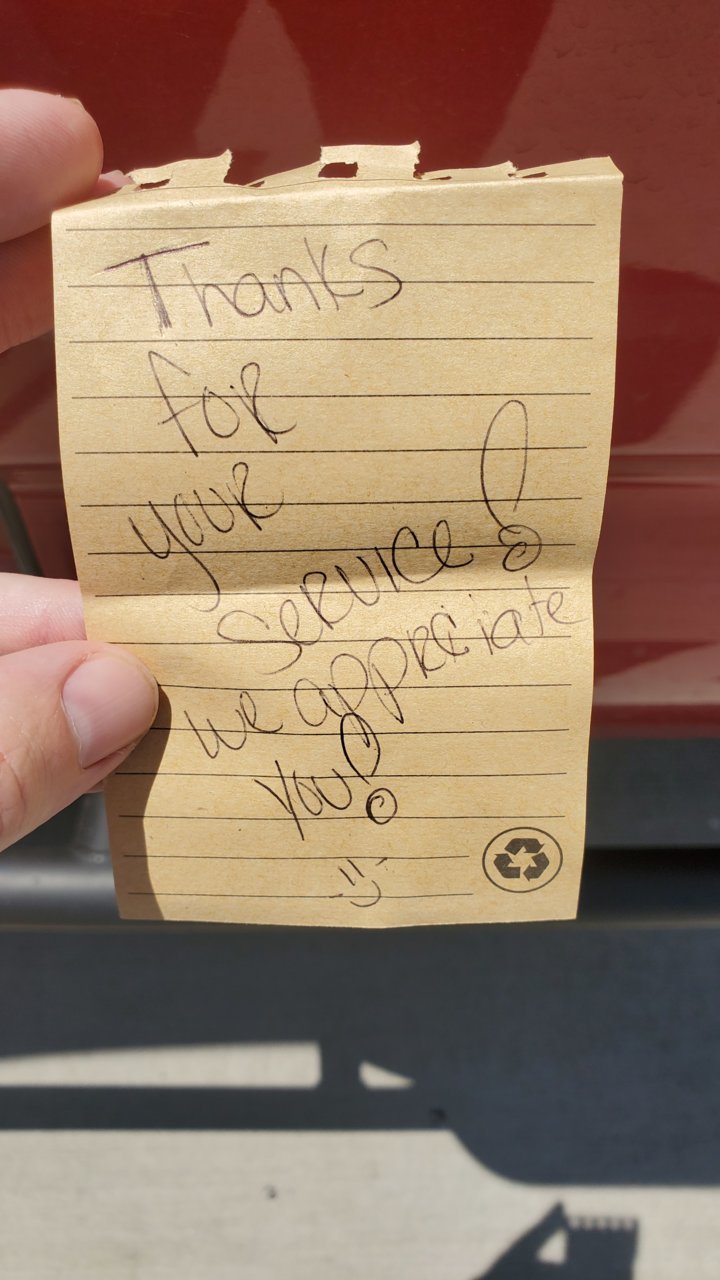 Thanks
for
your
service!
we appreciate
you!